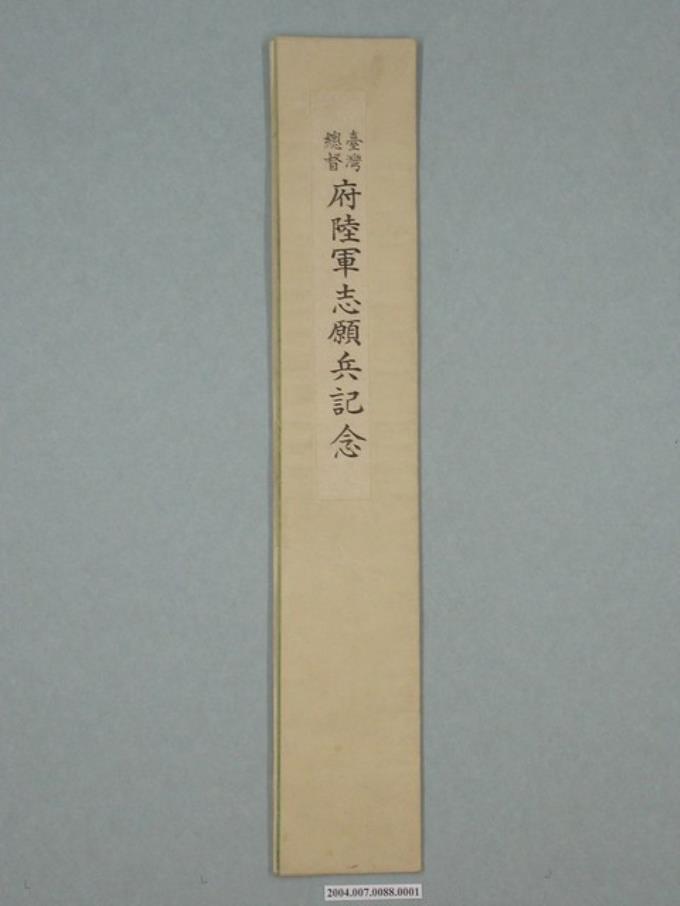 臺灣
總督
府陸軍志願兵記念
2004.007.0088.0001